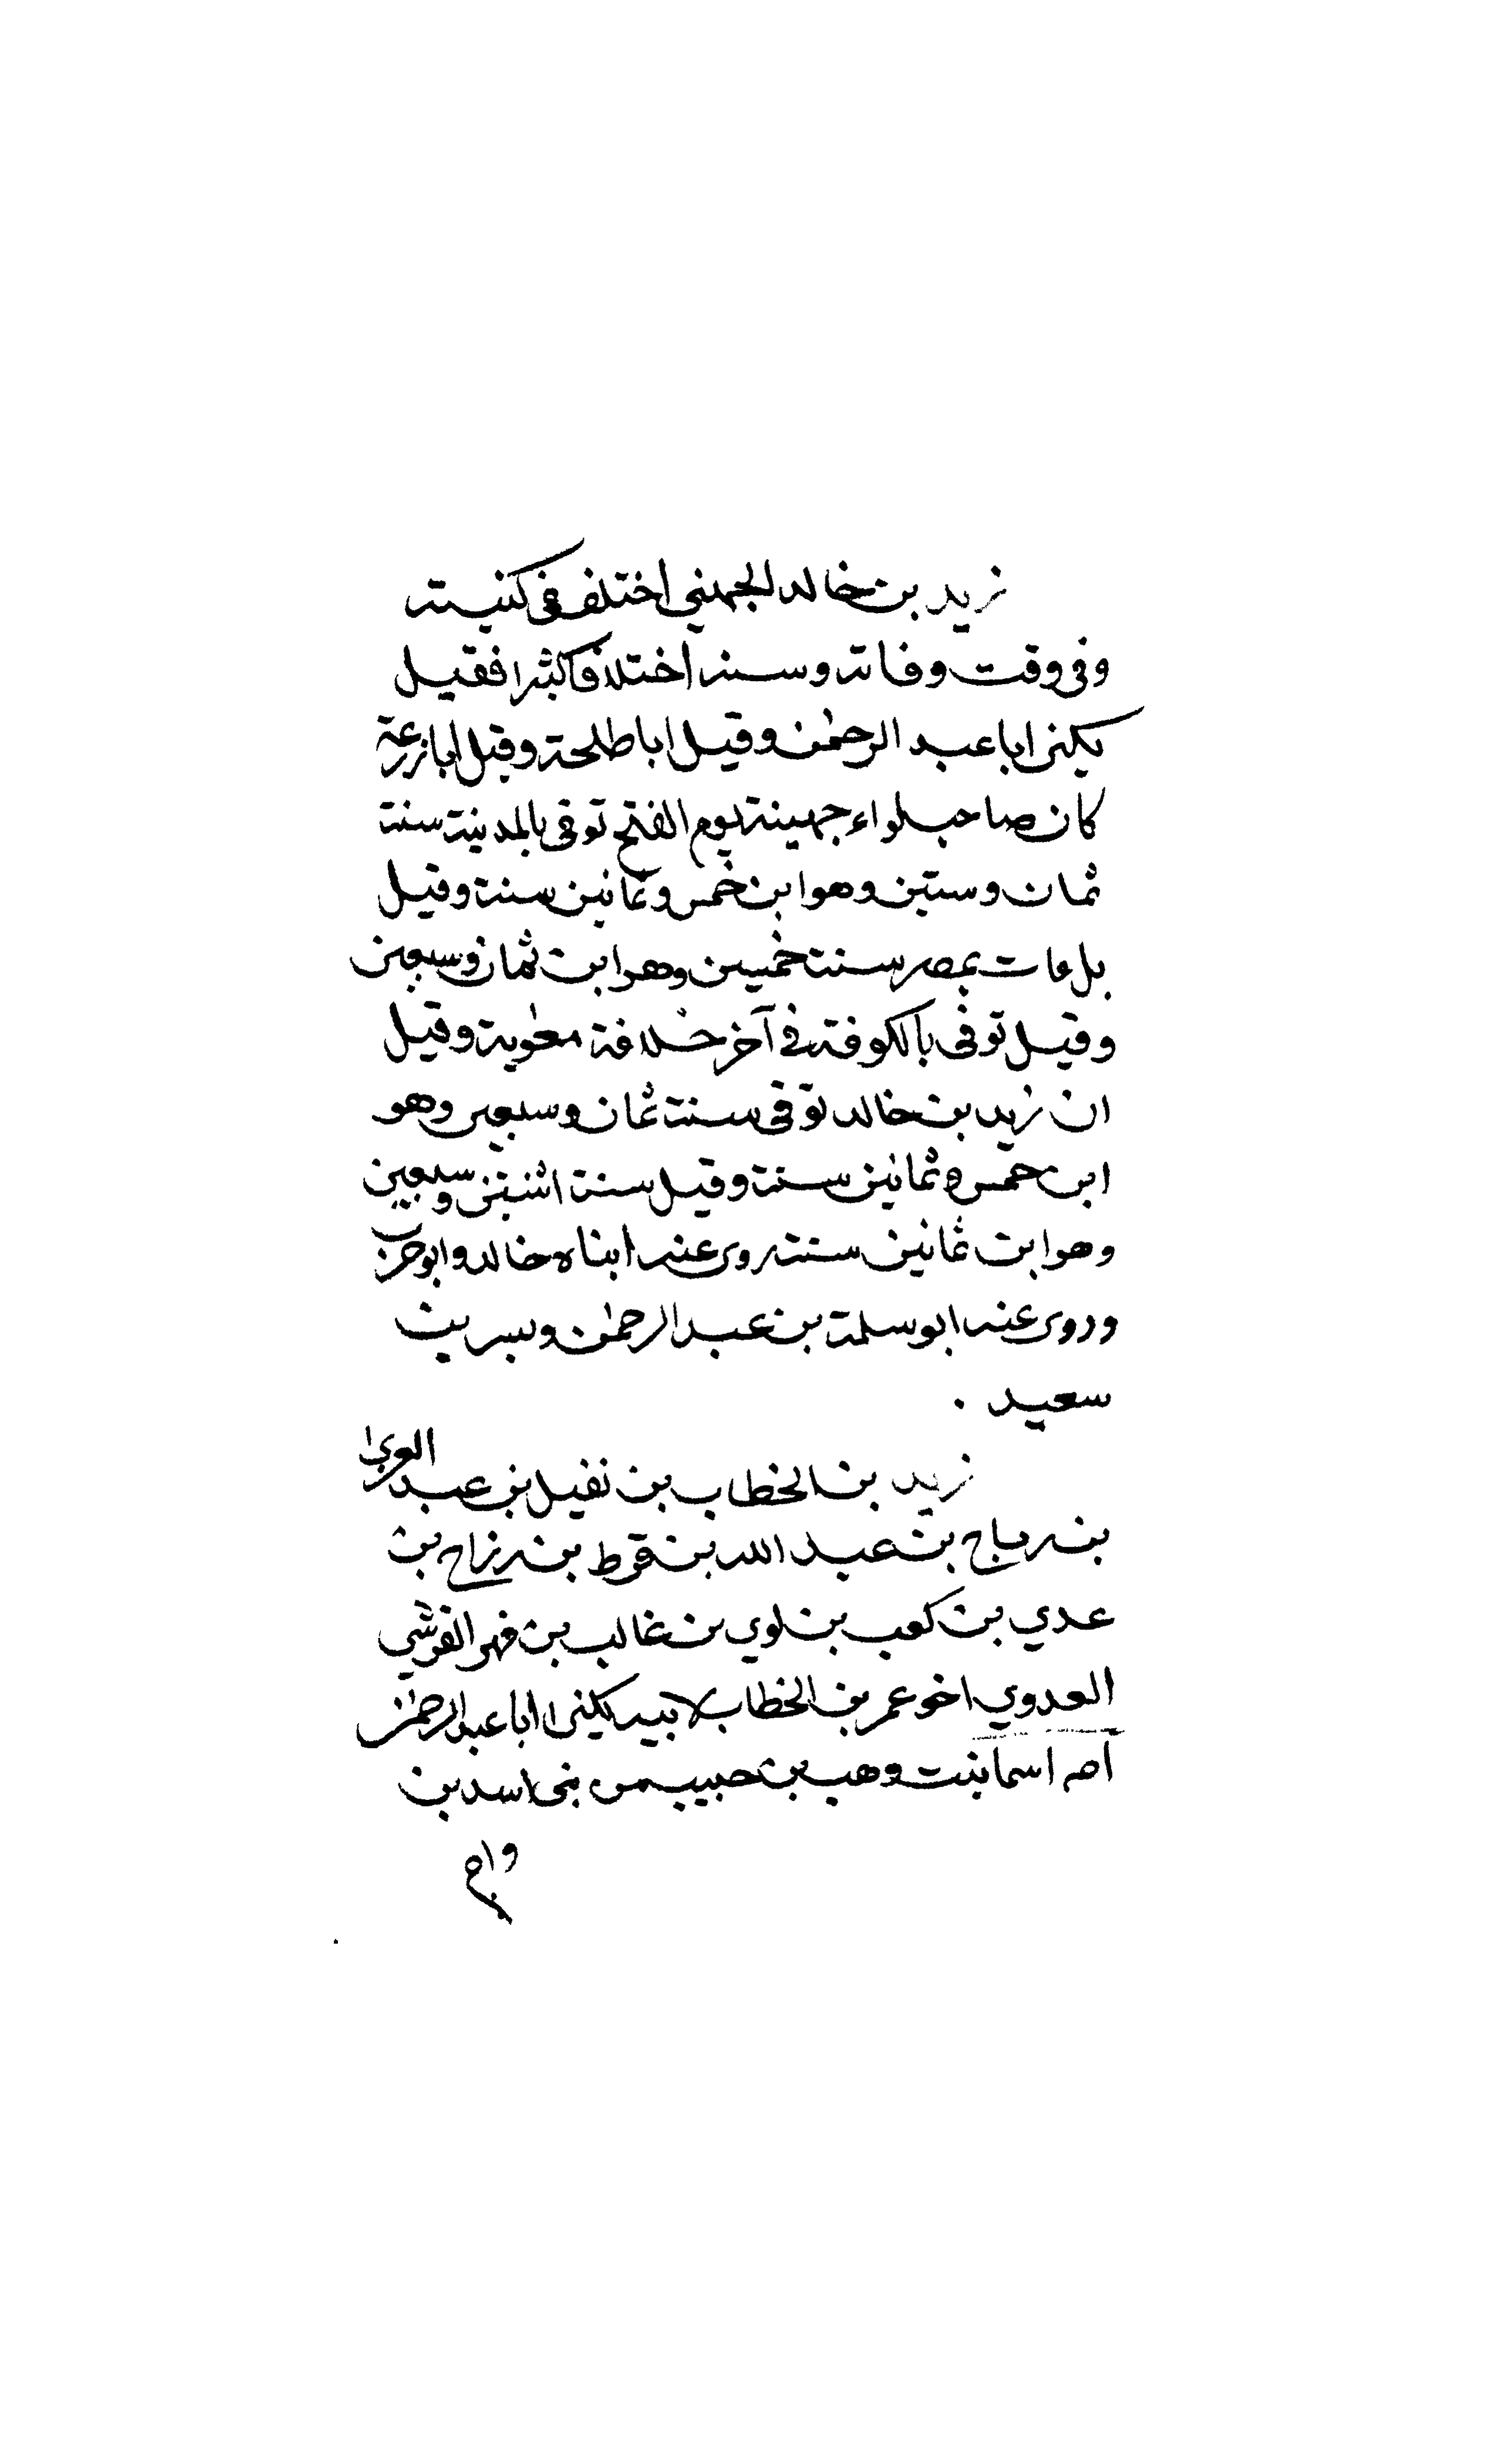 زيد بن خالد الجهني اختلف في كنيته
وفي وقت وفاته وسنه اختلافا كثيرا فقيل
يكنى ابا عبد الرحمٰن وقيل ابا طلحة وقيل ابا زرعة
كان صاحب لواء جهينة يوم الفتح توفي بالمدينة سنة
ثمان وستين وهو ابن خمس وثمانين سنة وقيل
بل مات بمصر سنة خمسين وهو ابن ثمان وسبعين
وقيل توفي بالكوفة في آخر خلافة معٰوية وقيل
ان زيد بن خالد توفي سنة ثمان وسبعين وهو
ابن خمس و ثمانين سنة وقيل سنة اثنتين وسبعين
وهو ابن ثمانين سنة روى عنه ابناه خالد وابو حرب
وروى عنه ابو سلمة بن عبد الرحمٰن وبسر بن
سعيد .
زيد بن الخطاب بن نفيل بن عبد العزى
بن رباح بن عبد الله بن قرط بن رزاح بن
عدي بن كعب بن لوي بن غالب بن فهر القرشي
العدوي اخو عمر بن الخطاب لابيه يكنى ابا عبد الرحمٰن
امه اسما بنت وهب بن حبيب من بني اسد بن
وام